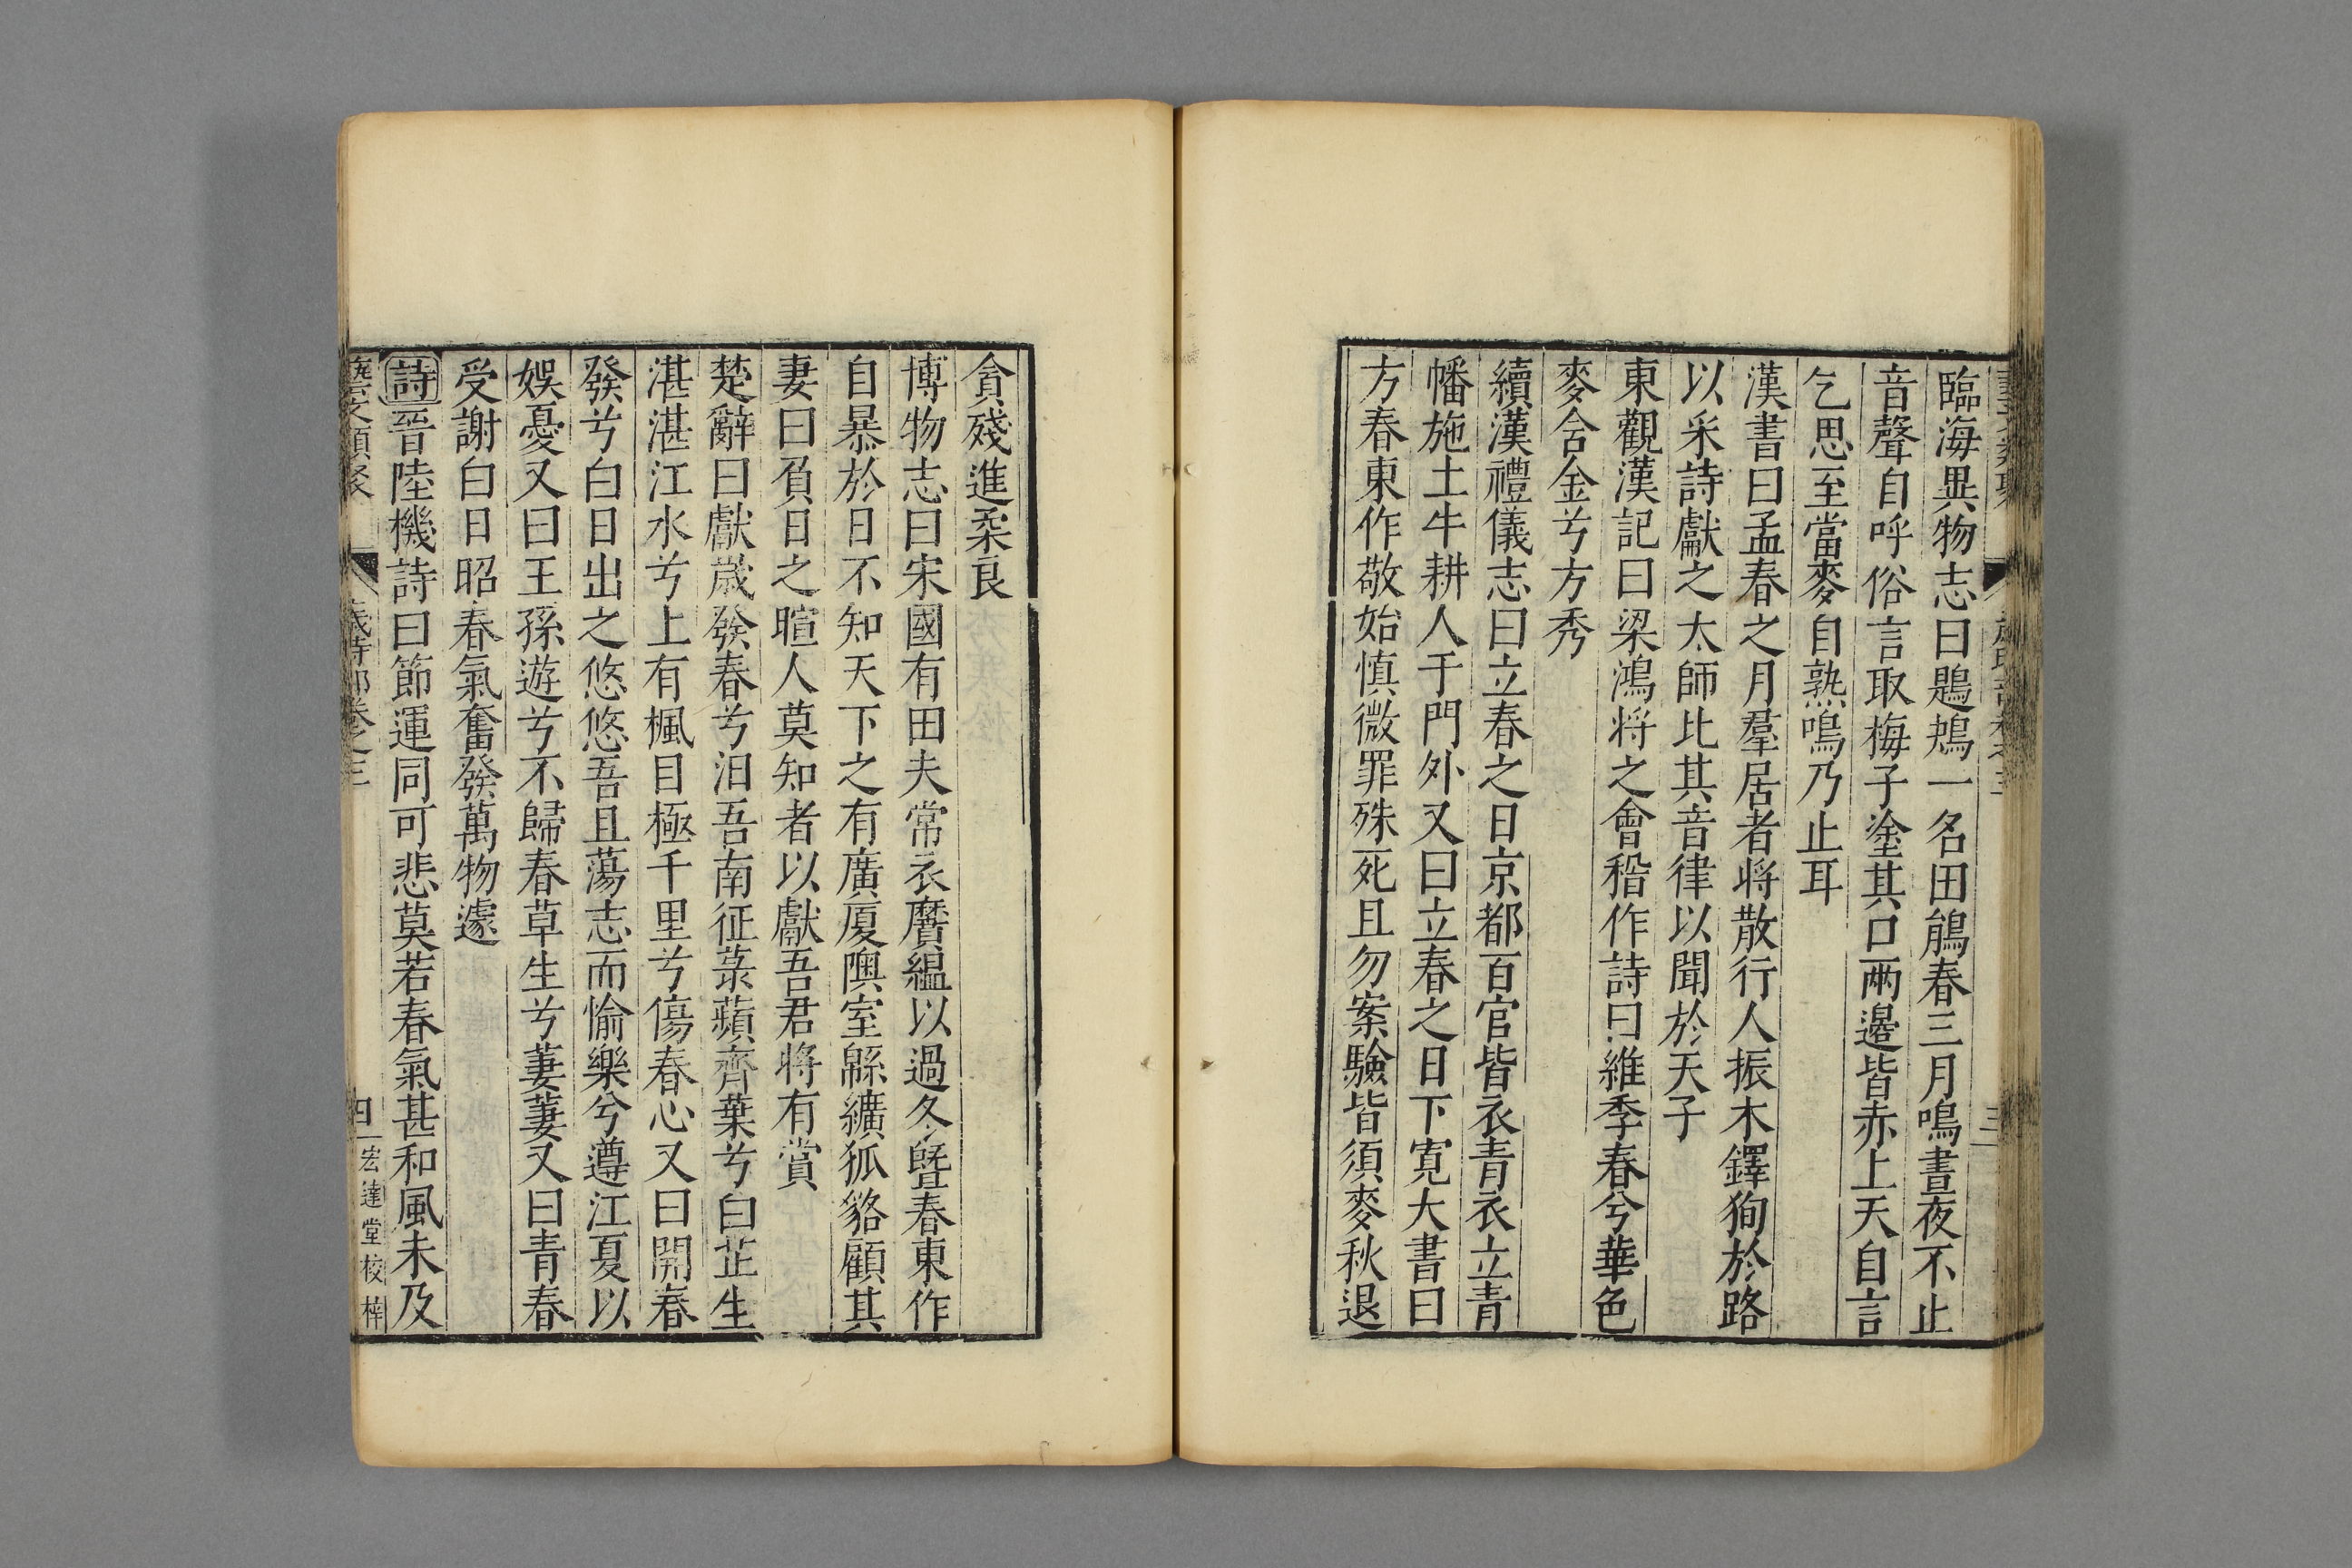 臨海異物志曰鶗鴂一名田鵑春三月鳴晝夜不止
音聲自呼俗言取梅子塗其口兩邊皆赤上天自言
乞思至當麥自熟鳴乃止耳
漢書曰孟春之月羣居者將散行人振木鐸狥於路
以采詩獻之太師比其音律以聞於天子
東觀漢記曰梁鴻將之會稽作詩曰維季春兮華色
麥含金兮方秀
續漢禮儀志曰立春之日京都百官皆衣青衣立青
幡施土牛耕人于門外又曰立春之日下寬大書曰
方春東作敬始慎微罪殊死且勿案驗皆須麥秋退
貪殘進柔良
博物志曰宋國有田夫常衣黂縕以過冬曁春東作
自暴於日不知天下之有廣厦隩室緜纊狐貉顧其
妻曰負日之暄人莫知者以獻吾君將有賞
楚辭曰獻歲發春兮汨吾南征菉蘋齊葉兮白芷生
湛湛江水兮上有楓目極千里兮傷春心又曰開春
發兮白日出之悠悠吾且蕩志而愉樂兮遵江夏以
娛憂又曰王孫遊兮不歸春草生兮萋萋又曰青春
受謝白日昭春氣奮發萬物遽
詩晉陸機詩曰節運同可悲莫若春氣甚和風未及
藝文類聚 歲時部卷之三 四 宏達堂校梓